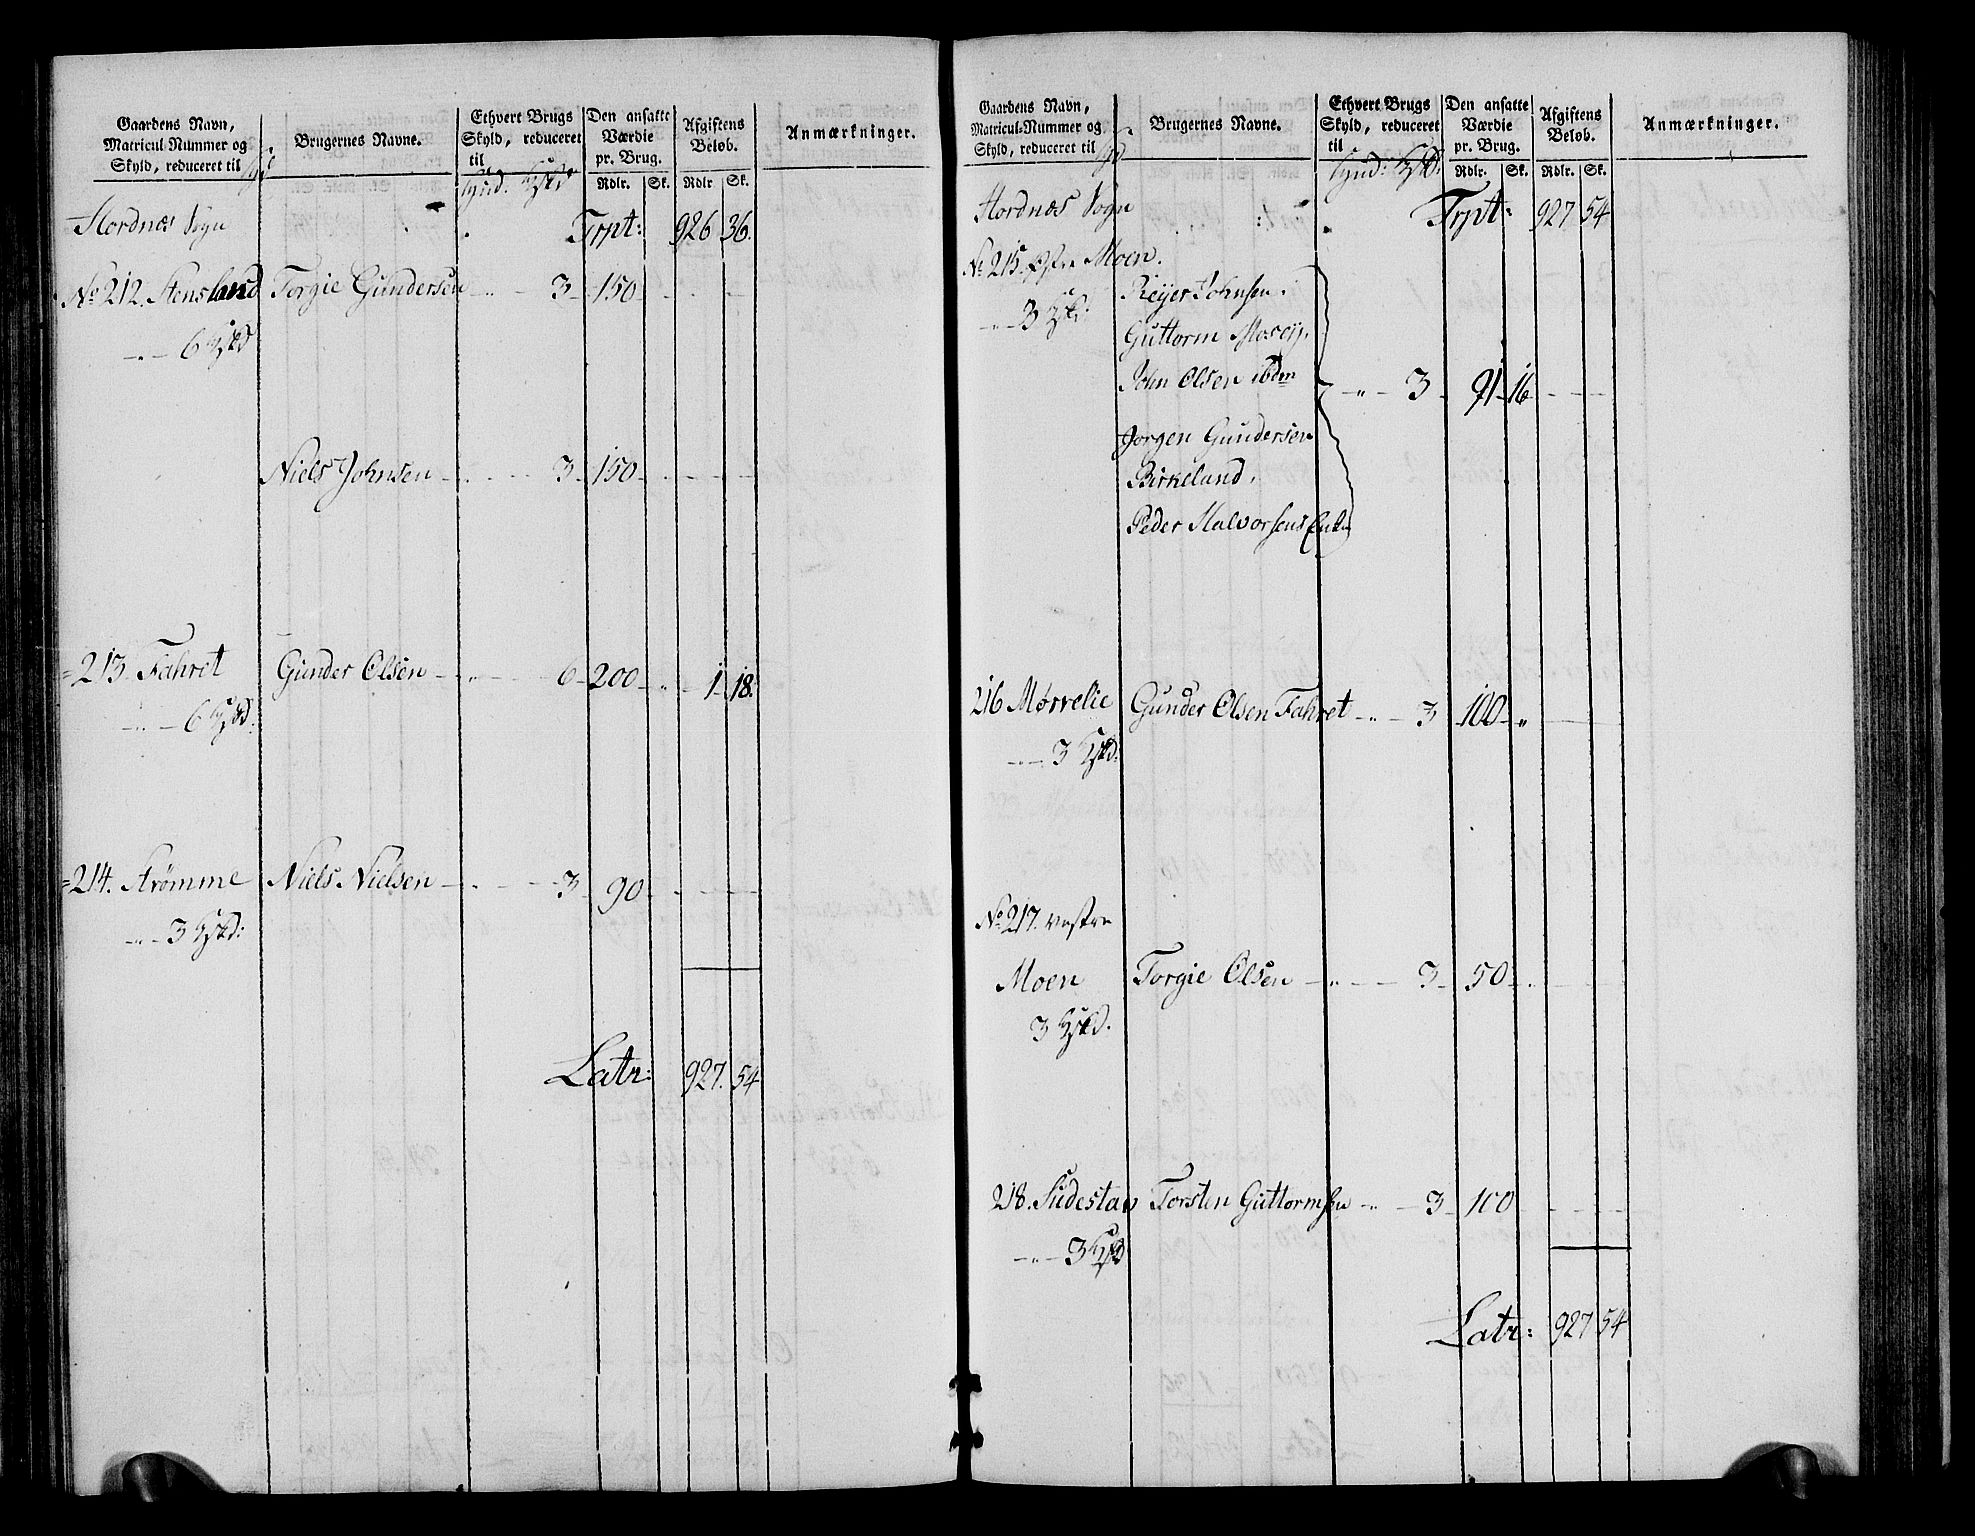 Gaardens Navn, Matricul-Nummer og Skyld, reduceret til
Brugernes Navne.
Ethvert Brugs Skyld, reduceret til
Den ansatte Værdie pr. Brug.
Afgiftens Beløb.
Anmærkninger.
Rdlr. Sk. Rdlr Sk.
Hordnæs Sogn Trpt: 926 36.
No 212. Stensland Torgie Gundersen 3 150
6
Niels Johnsen 3 150
213 Fahret Gunder Olsen 6 200 1 18.
6
214. Strømme Niels Nielsen 3 90
3
Latr: 927. 54
Gaardens Navn, Matricul-Nummer og Skyld, reduceret til
Brugernes Navne.
Ethvert Brugs Skyld, reduceret til
Den ansatte Værdie pr. Brug.
Afgiftens Beløb.
Anmærkninger.
Rdlr. Sk. Rdlr. Sk.
Hordnæs Sogn Trpt: 927 54
No 215. Østre Moen.
Reyer Johnsen.
3
Guttorm
John Olsen ibdm 3 91 16
Jorgen Gundersen
Birkeland,
Peder Halvorsens Enke
216 Mørvelie Gunder Olsen Fahret 3 100 "
3
No 217. vestre
Moen Torgie Olsen 3 50
3
218. Sudestav Torsten Guttormsen 3 100
3
Latr: 927 54